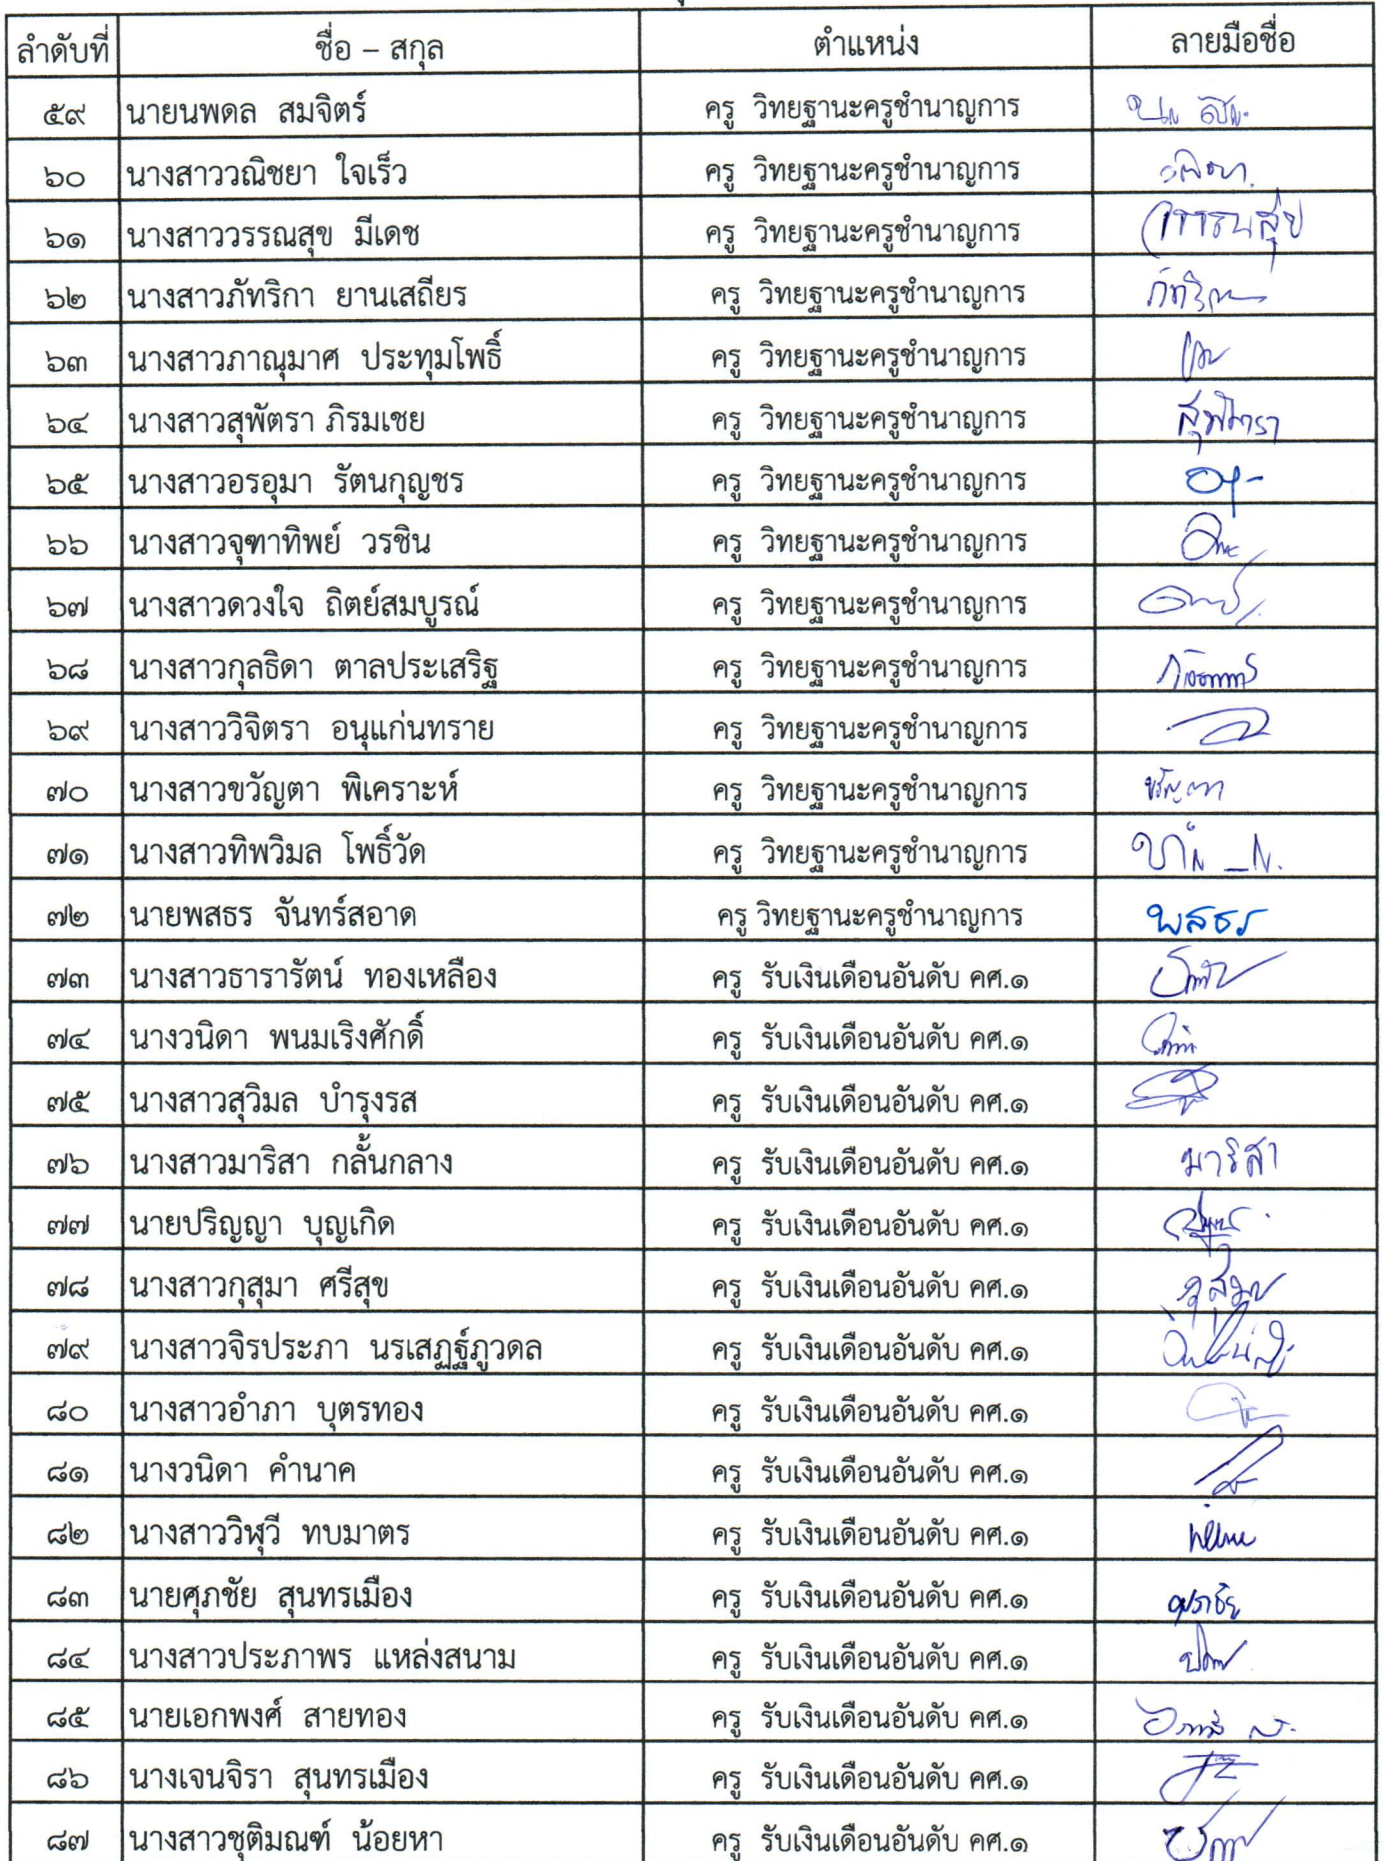 ลำดับที่ ชื่อ – สกุล ตำแหน่ง ลายมือชื่อ
๕๙ นายนพดล สมจิตร์ ครู วิทยฐานะครูชำนาญการ
๖๐ นางสาววณิชยา ใจเร็ว ครู วิทยฐานะครูชำนาญการ
๖๑ นางสาววรรณสุข มีเดช ครู วิทยฐานะครูชำนาญการ วรรณสุข
๖๒ นางสาวภัทริกา ยานเสถียร ครู วิทยฐานะครูชำนาญการ
๖๓ นางสาวภาณุมาศ ประทุมโพธิ์ ครู วิทยฐานะครูชำนาญการ
๖๔ นางสาวสุพัตรา ภิรมเชย ครู วิทยฐานะครูชำนาญการ สุพัตรา
๖๕ นางสาวอรอุมา รัตนกุญชร ครู วิทยฐานะครูชำนาญการ
๖๖ นางสาวจุฑาทิพย์ วรชิน ครู วิทยฐานะครูชำนาญการ
๖๗ นางสาวดวงใจ ถิตย์สมบูรณ์ ครู วิทยฐานะครูชำนาญการ
๖๘ นางสาวกุลธิดา ตาลประเสริฐ ครู วิทยฐานะครูชำนาญการ
๖๙ นางสาววิจิตรา อนุแก่นทราย ครู วิทยฐานะครูชำนาญการ
๗๐ นางสาวขวัญตา พิเคราะห์ ครู วิทยฐานะครูชำนาญการ ขวัญตา
๗๑ นางสาวทิพวิมล โพธิ์วัด ครู วิทยฐานะครูชำนาญการ
๗๒ นายพสธร จันทร์สอาด ครู วิทยฐานะครูชำนาญการ พสธร
๗๓ นางสาวธารารัตน์ ทองเหลือง ครู รับเงินเดือนอันดับ คศ.๑
๗๔ นางวนิดา พนมเริงศักดิ์ ครู รับเงินเดือนอันดับ คศ.๑
๗๕ นางสาวสุวิมล บำรุงรส ครู รับเงินเดือนอันดับ คศ.๑
๗๖ นางสาวมาริสา กลั้นกลาง ครู รับเงินเดือนอันดับ คศ.๑ มาริสา
๗๗ นายปริญญา บุญเกิด ครู รับเงินเดือนอันดับ คศ.๑
๗๘ นางสาวกุสุมา ศรีสุข ครู รับเงินเดือนอันดับ คศ.๑
๗๙ นางสาวจิรประภา นรเสฏฐ์ภูวดล ครู รับเงินเดือนอันดับ คศ.๑
๘๐ นางสาวอำภา บุตรทอง ครู รับเงินเดือนอันดับ คศ.๑
๘๑ นางวนิดา คำนาค ครู รับเงินเดือนอันดับ คศ.๑
๘๒ นางสาววิฬุวี ทบมาตร ครู รับเงินเดือนอันดับ คศ.๑
๘๓ นายศุภชัย สุนทรเมือง ครู รับเงินเดือนอันดับ คศ.๑ ศุภชัย
๘๔ นางสาวประภาพร แหล่งสนาม ครู รับเงินเดือนอันดับ คศ.๑
๘๕ นายเอกพงศ์ สายทอง ครู รับเงินเดือนอันดับ คศ.๑
๘๖ นางเจนจิรา สุนทรเมือง ครู รับเงินเดือนอันดับ คศ.๑
๘๗ นางสาวชุติมณฑ์ น้อยหา ครู รับเงินเดือนอันดับ คศ.๑